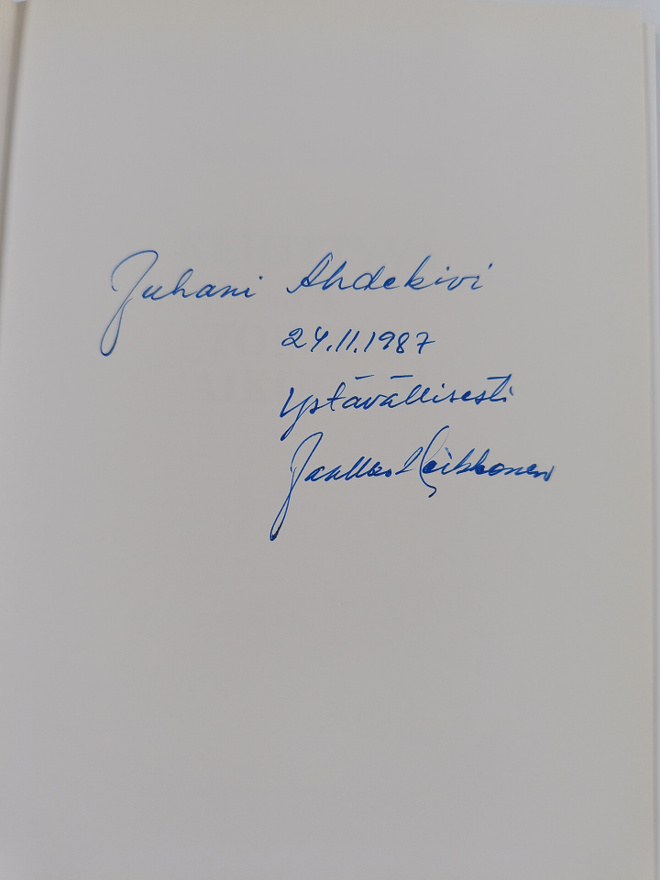 Juhani Ahdekivi
24.11.1987
Ystävällisesti
Jaakko Heikkonen